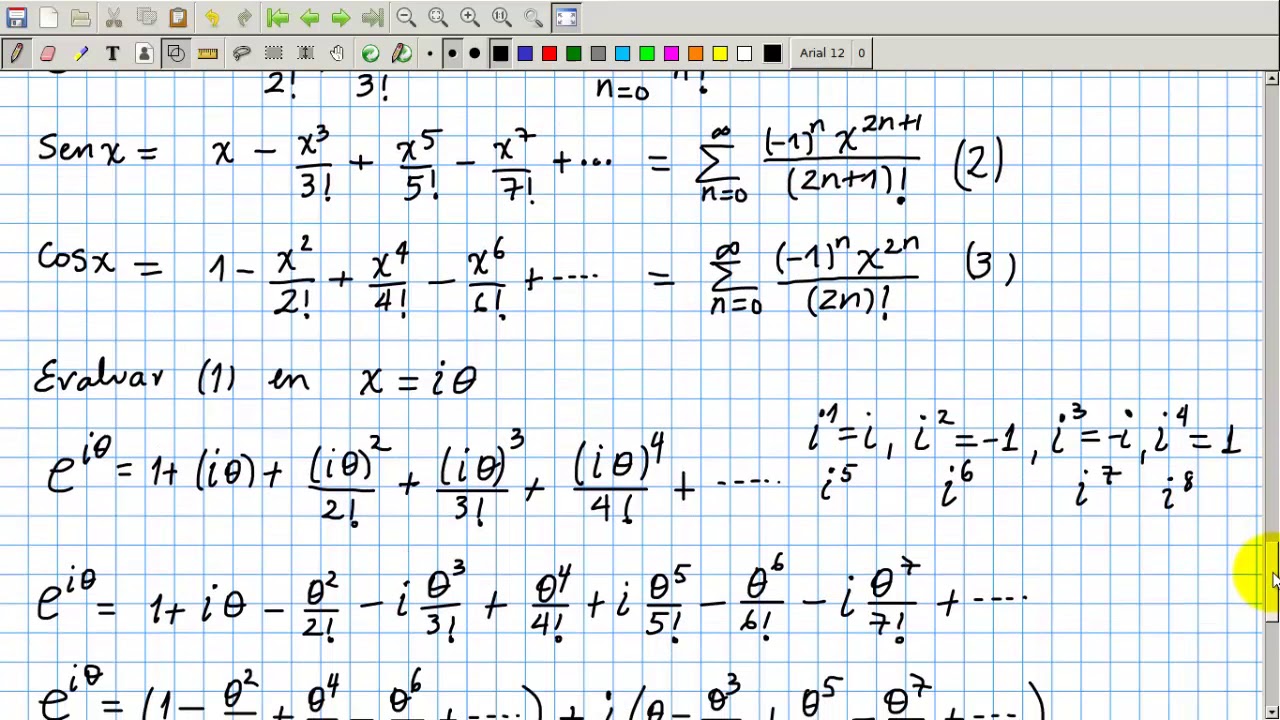 Arial 12 0
2! 3! n=0 n!
Sen x = x - x³/3! + x⁵/5! - x⁷/7! + ... = ∑_{n=0}^{∞} (-1)ⁿ x²ⁿ⁺¹/(2n+1)! (2)
Cos x = 1 - x²/2! + x⁴/4! - x⁶/6! + .... = ∑_{n=0}^{∞} (-1)ⁿ x²ⁿ/(2n)! (3)
Evaluar (1) en x = iθ
i¹ = i, i² = -1, i³ = -i, i⁴ = 1
e^{iθ} = 1 + (iθ) + (iθ)²/2! + (iθ)³/3! + (iθ)⁴/4! + ..... i⁵ i⁶ i⁷ i⁸
e^{iθ} = 1 + iθ - θ²/2! - i θ³/3! + θ⁴/4! + i θ⁵/5! - θ⁶/6! - i θ⁷/7! + ....
e^{iθ} = (1 - θ² + θ⁴ - θ⁶ + ....) + i (θ - θ³ + θ⁵ - θ⁷ + ....)